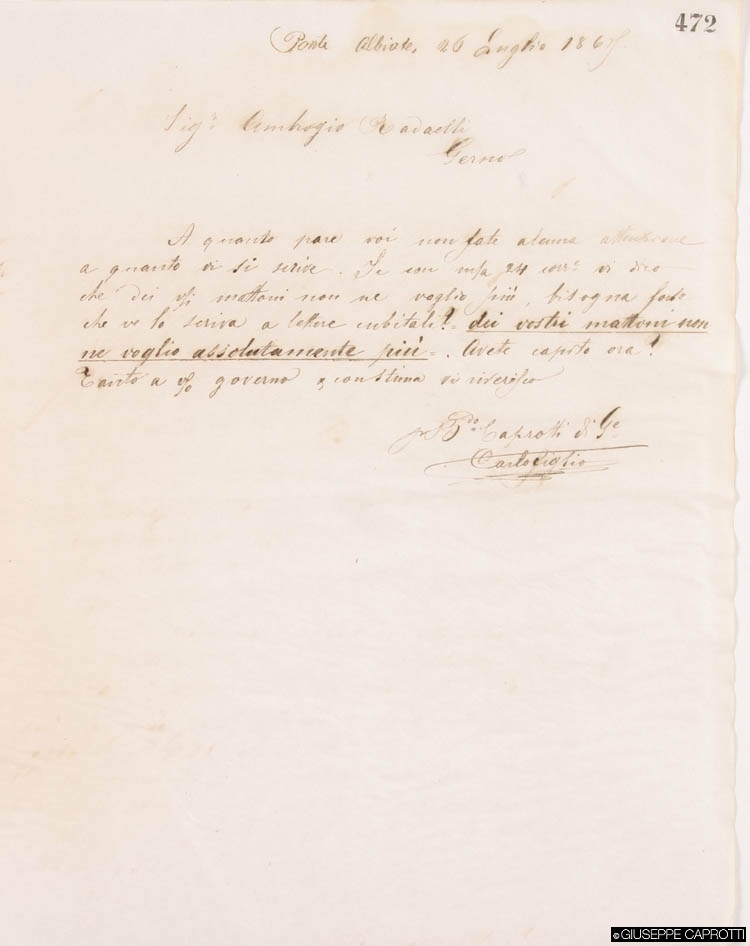 472
Ponte Albiate, 26 Luglio 186
Sigr. Ambrogio Radaelli
Gerno
A quanto pare voi non fate alcuna attenzione
a quanto vi si scrive. Se con mja 24 corr. vi dico
che dei vsi mattoni non ne voglio più, bisogna forse
che ve lo scriva a lettere cubitali? = dei vostri mattoni non
ne voglio assolutamente più =. Avete capito ora?
Tanto a vo governo & con stima vi riverisco
Caprotti di Ge
Carlo figlio
©GIUSEPPE CAPROTTI